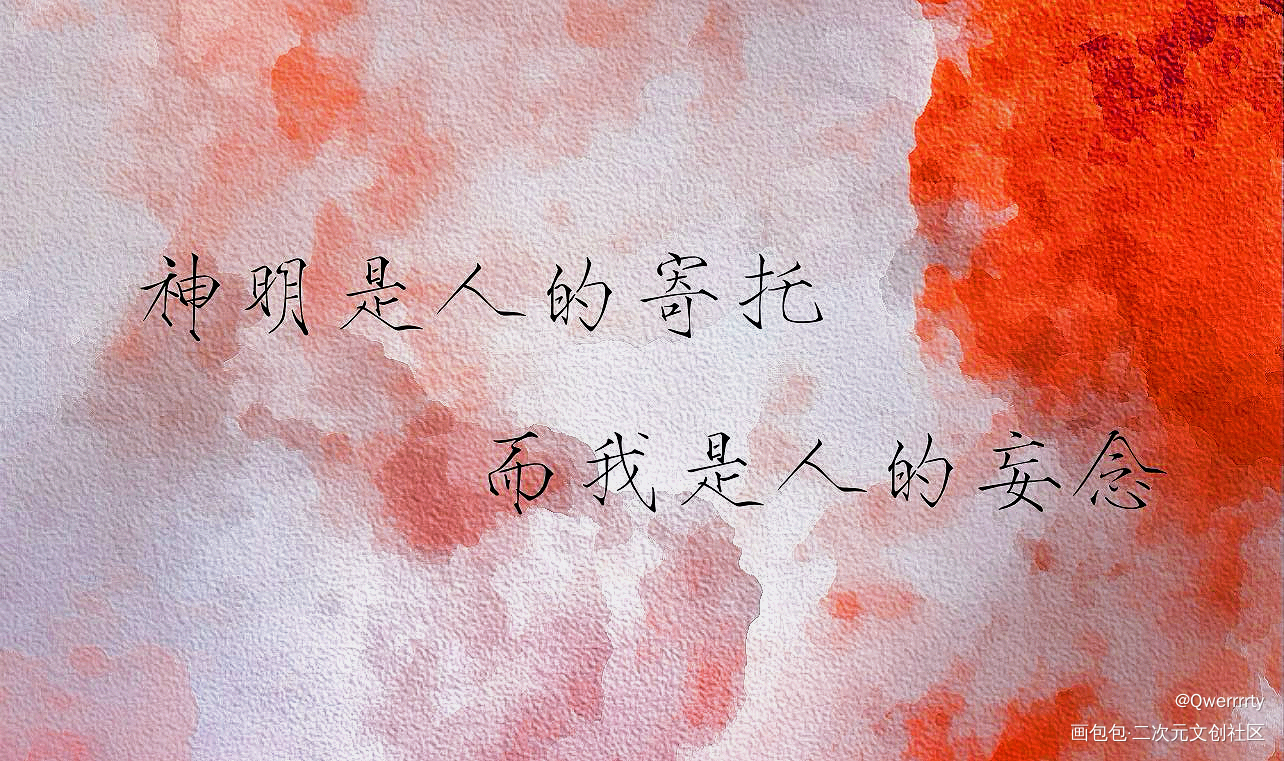 神明是人的寄托
而我是人的妄念
@Qwerrrrty
画包包·二次元文创社区